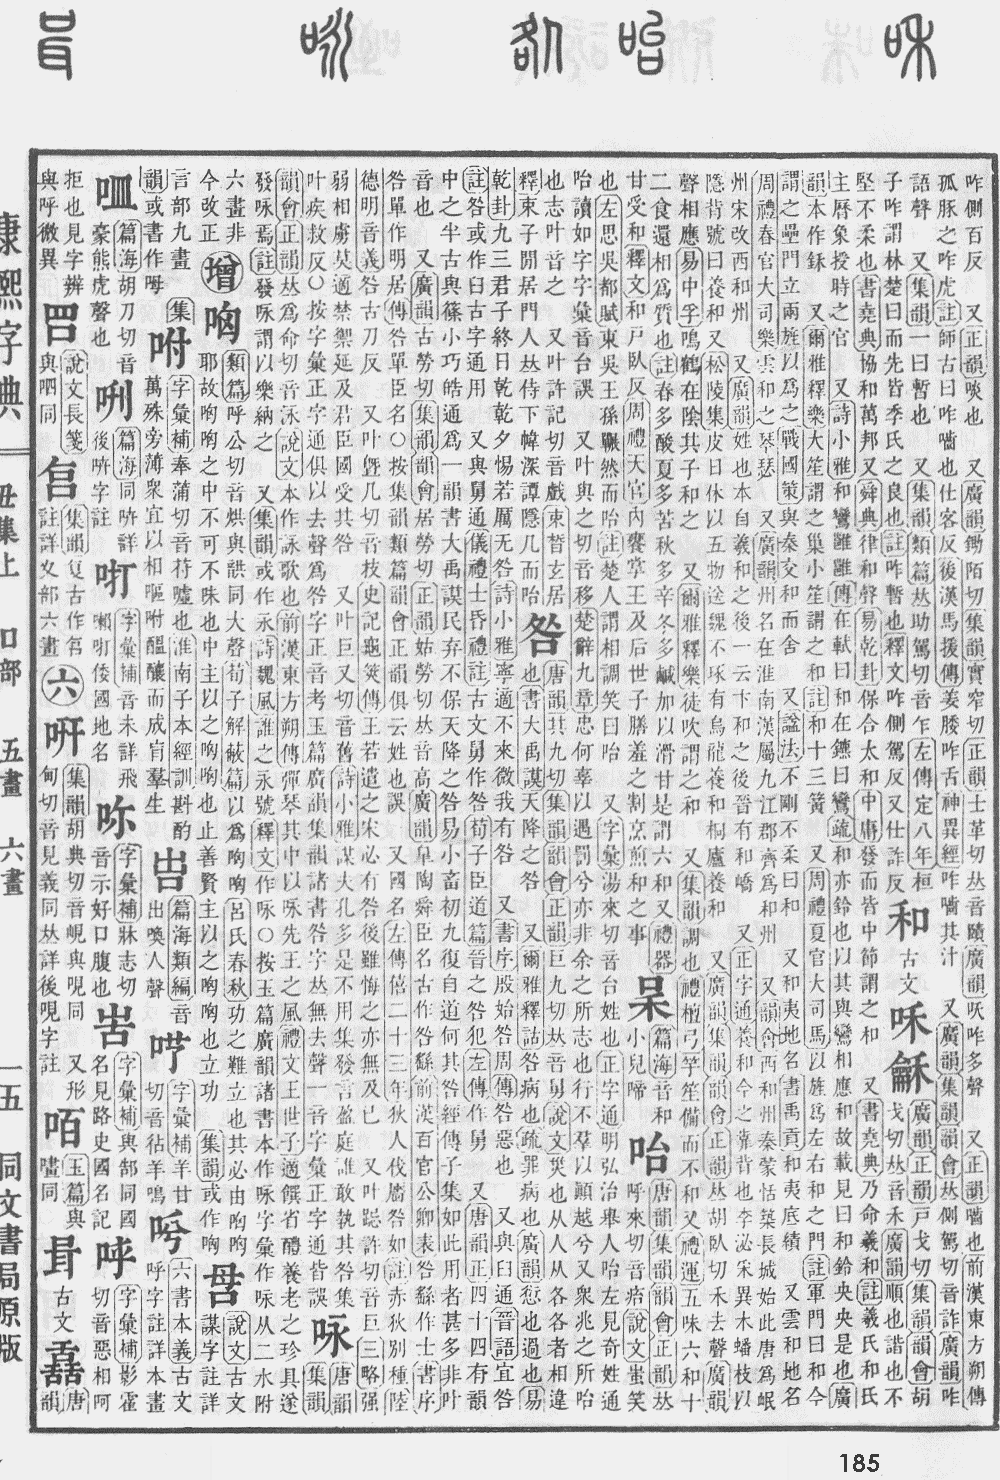 咋側百反 又正韻啖也 又廣韻鋤陌切集韻實窄切正韻士革切𠀤音賾廣韻咴咋多聲 又正韻嚙也前漢東方朔傳
孤豚之咋虎註師古曰咋嚙也仕客反後漢馬援傳姜腇咋舌神異經咋嚙其汁 又廣韻集韻韻會𠀤側駕切音詐廣韻咋
語聲 又集韻一曰暫也 又集韻類篇𠀤助駕切音乍左傳定八年桓
子咋謂林楚曰而先皆季氏之良也註咋暫也釋文咋側駕反又仕詐反
和 古文 咊龢 廣韻正韻戸戈切集韻韻會胡
戈切𠀤音禾廣韻順也諧也不
堅不柔也書堯典協和萬邦又舜典律和聲易乾卦保合太和中庸發而皆中節謂之和 又書堯典乃命羲和註羲氏和氏
主曆象授時之官 又詩小雅和鸞雝雝傳在軾曰和在鑣曰鸞疏和亦鈴也以其與鸞相應和故載見曰和鈴央央是也廣
韻本作鉌 又爾雅釋樂大笙謂之巢小笙謂之和註和十三簧 又周禮夏官大司馬以旌爲左右和之門註軍門曰和今
謂之壘門立兩旌以爲之戰國策與秦交和而舍 又諡法不剛不柔曰和 又和夷地名書禹貢和夷厎績 又雲和地名
周禮春官大司樂雲和之琴瑟 又廣韻州名在淮南漢屬九江郡齊爲和州 又韻會西和州秦蒙恬築長城始此唐爲岷
州宋改西和州 又廣韻姓也本自羲和之後一云卞和之後晉有和嶠 又正字通養和今之靠背也李泌采異木蟠枝以
隱背號曰養和又松陵集皮日休以五物送魏不琢有烏龍養和桐廬養和 又廣韻集韻韻會正韻𠀤胡臥切禾去聲廣韻
聲相應易中孚鳴鶴在陰其子和之 又爾雅釋樂徒吹謂之和 又集韻調也禮檀弓竽笙備而不和又禮運五味六和十
二食還相爲質也註春多酸夏多苦秋多辛冬多鹹加以滑甘是謂六和又禮器
甘受和釋文和戸臥反周禮天官內饔掌王及后世子膳羞之割烹煎和之事
呆 篇海音和
小兒啼
咍 唐韻集韻韻會正韻𠀤
呼來切音痎說文蚩笑
也左思吳都賦東吳王孫囅然而咍註楚人謂相調笑曰咍 又字彙湯來切音台姓也正字通明弘治舉人咍左見奇姓通
咍讀如字字彙音台誤 又叶與之切音移楚辭九章忠何辜以遇罰兮亦非余之所志也行不羣以顚越兮又衆兆之所咍
也志叶音之 又叶許記切音戲束皙玄居
釋束子閒居門人𠀤侍下帷深譚隱几而咍
咎 唐韻其九切集韻韻會正韻巨九切𠀤音舅說文災也从人从各各者相違
也書大禹謨天降之咎 又爾雅釋詁咎病也疏罪病也廣韻愆也過也易
乾卦九三君子終日乾乾夕惕若厲无咎詩小雅寧適不來微我有咎 又書序殷始咎周傳咎惡也 又與臼通晉語宜咎
註咎或作臼古字通用 又與舅通儀禮士昏禮註古文舅作咎荀子臣道篇晉之咎犯左傳作舅 又唐韻正四十四有韻
中之半古與篠小巧皓通爲一韻書大禹謨民弃不保天降之咎易小畜初九復自道何其咎經傳子集如此用者甚多非叶
音也 又廣韻古勞切集韻韻會居勞切正韻姑勞切𠀤音高廣韻皐陶舜臣名古作咎繇前漢百官公卿表咎繇作士書序
咎單作明居傳咎單臣名○按集韻類篇韻會正韻俱云姓也誤 又國名左傳僖二十三年狄人伐廧咎如註赤狄別種陸
德明音義咎古刀反 又叶曁几切音技史記龜筴傳王若遣之宋必有咎後雖悔之亦無及已 又叶跽許切音巨三略强
弱相虜莫適禁禦延及君臣國受其咎 又叶巨又切音舊詩小雅謀夫孔多是用不集發言盈庭誰敢執其咎集
叶疾救反○按字彙正字通俱以去聲爲咎字正音考玉篇廣韻集韻諸書咎字𠀤無去聲一音字彙正字通皆誤
咏 唐韻
集韻
韻會正韻𠀤爲命切音泳說文本作詠歌也前漢東方朔傳彈琴其中以咏先王之風禮文王世子適饌省醴養老之珍具遂
發咏焉註發咏謂以樂納之 又集韻或作永詩魏風誰之永號釋文作咏○按玉篇廣韻諸書本作咏字彙作咏从二水附
六畫非
今改正
增
哅 類篇呼公切音烘與訌同大聲荀子解蔽篇以爲哅哅 呂氏春秋功之難立也其必由哅哅
耶故哅哅之中不可不味也中主以之哅哅也止善賢主以之哅哅也立功 集韻或作哅
說文古文
謀字註詳
言部九畫 集
韻或書作呣
咐 字彙補奉蒲切音苻噓也淮南子本經訓斟酌
萬殊旁薄衆宜以相嘔咐醞釀而成育羣生
篇海類編音
出出喚人聲
字彙補羊廿
切音佁羊鳴
六書本義古文
呼字註詳本畫
篇海胡刀切音
豪熊虎聲也
咧 篇海同哜詳
後哜字註
字彙補音未詳飛
嘣咑倭國地名
字彙補牀志切
音示好口腹也
字彙補與郜同國
名見路史國名記
字彙補影霍
切音惡相呵
拒也見字辨
與呼微異
說文長箋
與呬同
集韻
註詳夊部六畫
六
咞 集韻胡典切音峴與哯同 又形
甸切音見義同𠀤詳後哯字註
咟 玉篇與
嚍同
古文
唐
韻
康熙字典 丑集上 口部 五畫 六畫 一五 同文書局原版
185